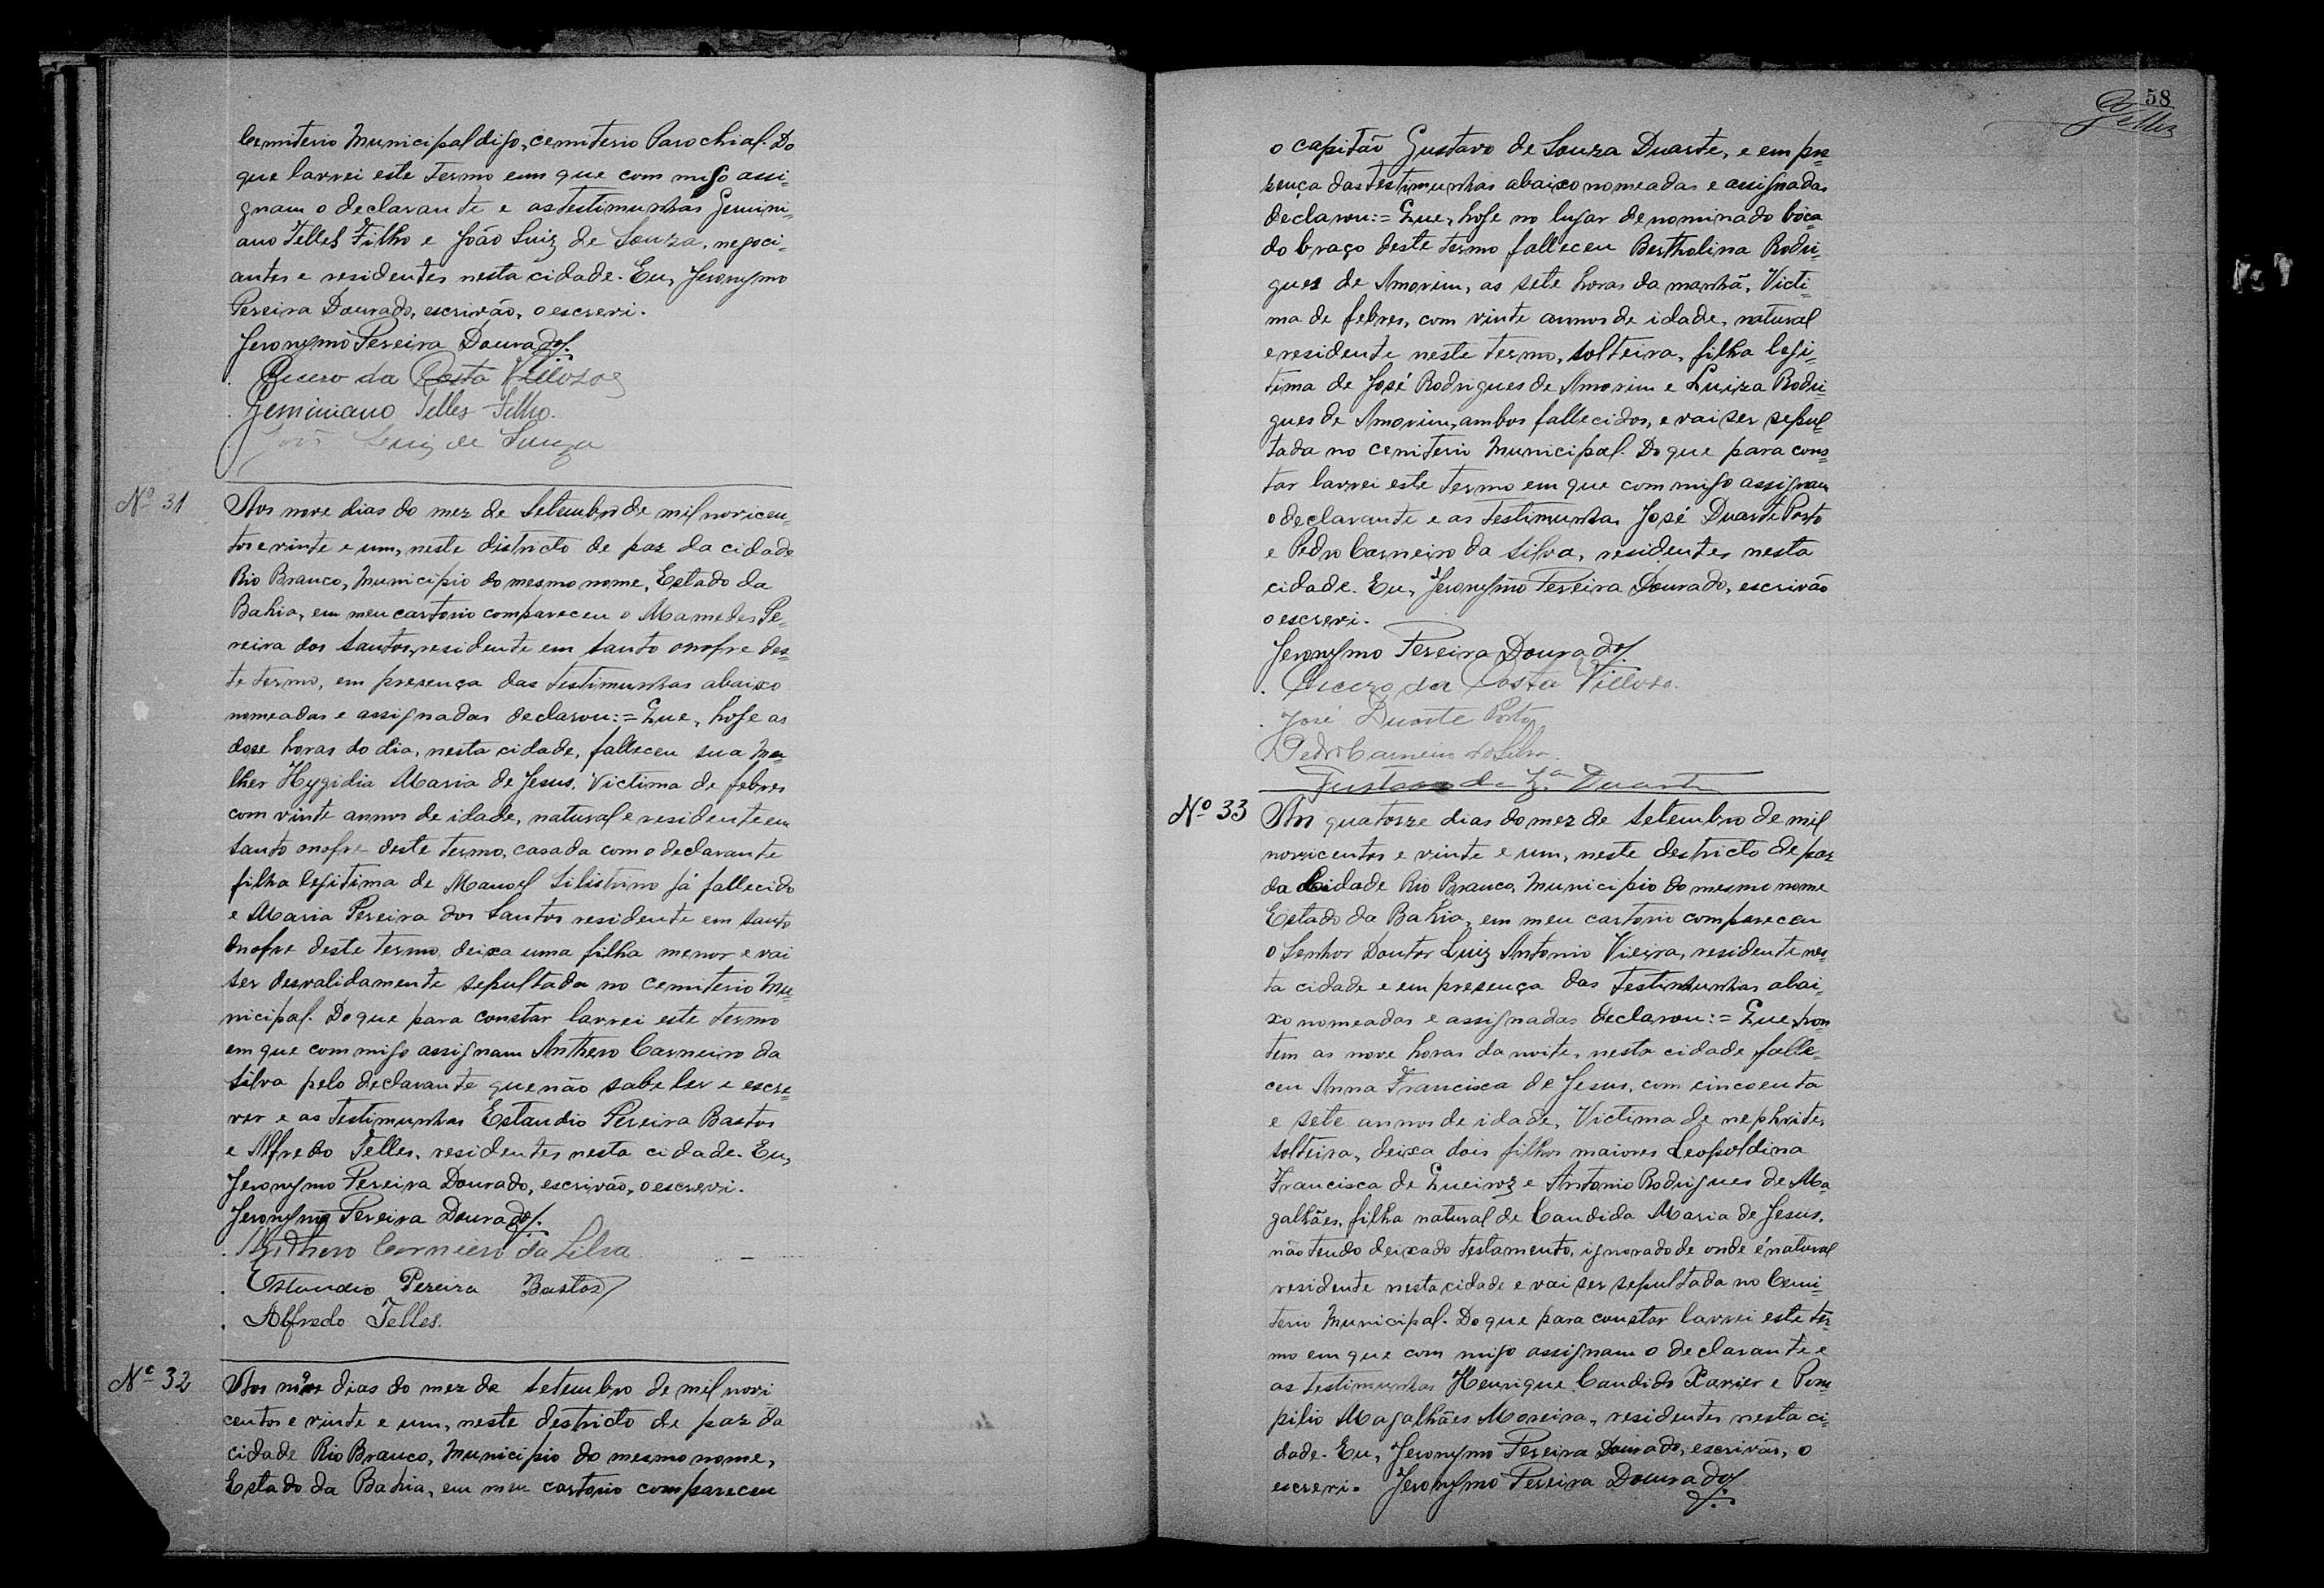 Cemiterio Municipal digo, cemiterio Parochial. Do
que lavrei este termo em que com migo assi-
gnam o declarante e as testimunhas Gemini-
ano Telles Filho e João Luiz de Souza, negoci-
antes e residentes nesta cidade. Eu, Jeronymo
Pereira Dourado, escrivão, o escrevi.
Jeronymo Pereira Dourado.
Cicero da Costa Velloso
Geminiano Telles Filho.
João Luiz de Souza
Nº 31
Aos nove dias do mez de Setembro de mil novicen-
tos e vinte e um, neste districto de paz da cidade
Rio Branco, Municipio do mesmo nome, Estado da
Bahia, em meu cartorio compareceu o Mamedes Pe-
reira dos Santos, residente em Santo onofre des-
te termo, em presença das testimunhas abaixo
nomeadas e assignadas declarou:= Que, hoje as
doze horas do dia, nesta cidade, falleceu sua Mu-
lher Hygidia Maria de Jesus, Victima de febres
com vinte annos de idade, natural e residente em
Santo onofre deste termo, casada com o declarante
filha legitima de Manoel já fallecido
e Maria Pereira dos Santos residente em Santo
Onofre deste termo, deixa uma filha menor e vai
ser desvalidamente sepultada no cemiterio Mu-
nicipal. Do que para constar lavrei este termo
em que com migo assignam Anthero Carneiro da
Silva pelo declarante que não sabe ler e escre-
ver e as testimunhas Estaudio Pereira Bastos
e Alfredo Telles, residentes nesta cidade. Eu,
Jeronymo Pereira Dourado, escrivão, o escrevi.
Jeronymo Pereira Dourado.
Anthero Carneiro da Silva
Estaudio Pereira Bastos
Alfredo Telles.
Nº 32
Aos dias do mez de Setembro de mil novi
centos e vinte e um, neste destricto de paz da
cidade Rio Branco, Municipio do mesmo nome,
Estado da Bahia, em meu cartorio compareceu
58
Telles
o capitão Gustavo de Souza Duarte, e em pre
sença das testimunhas abaixo nomeadas e assignadas
declarou:= Que, hoje no lugar denominado bôca
do braço deste termo falleceu Bertholina Rodri-
gues de Amorim, as sete horas da manhã, Victi-
ma de febres, com vinte annos de idade, natural
e residente neste termo, solteira, filha legi-
tima de José Rodrigues de Amorim e Luiza Rodri-
gues de Amorim, ambos fallecidos, e vai ser sepul-
tada no cemiterio Municipal. Do que para cons-
tar lavrei este termo em que com migo assignam
o declarante e as testimunhas José Duarte Porto
e Pedro Carneiro da Silva, residentes nesta
cidade. Eu, Jeronymo Pereira Dourado, escrivão
o escrevi.
Jeronymo Pereira Dourado.
Cicero da Costa Velloso.
José Duarte Porto
Pedro Carneiro da Silva
Gustavo de Zª Duarte
Nº 33
Aos quatorze dias do mez de Setembro de mil
novicentos e vinte e um, neste destricto de paz
da Cidade Rio Branco, Municipio do mesmo nome
Estado da Bahia, em meu cartorio compareceu
o Senhor Doutor Luiz Antonio Vieira, residente nes-
ta cidade e em presença das testimunhas abai-
xo nomeadas e assignadas declarou:= Que, hon
tem as nove horas da noite, nesta cidade falle-
ceu Anna Francisca de Jesus, com cincoenta
e sete annos de idade, Victima de nephrite,
solteira, deixa dois filhos maiores Leopoldina
Francisca de Queiroz e Antonio Rodrigues de Ma
galhães, filha natural de Candida Maria de Jesus,
não tendo deixado testamento, ignorado de onde é natural
residente nesta cidade e vai ser sepultada no Cemi-
terio Municipal. Do que para constar lavrei este ter-
mo em que com migo assignam o declarante e
as testimunhas Henrique Candido Xavier e Pom
pilio Magalhães Moreira, residentes nesta ci-
dade. Eu, Jeronymo Pereira Dourado, escrivão, o
escrevi. Jeronymo Pereira Dourado.